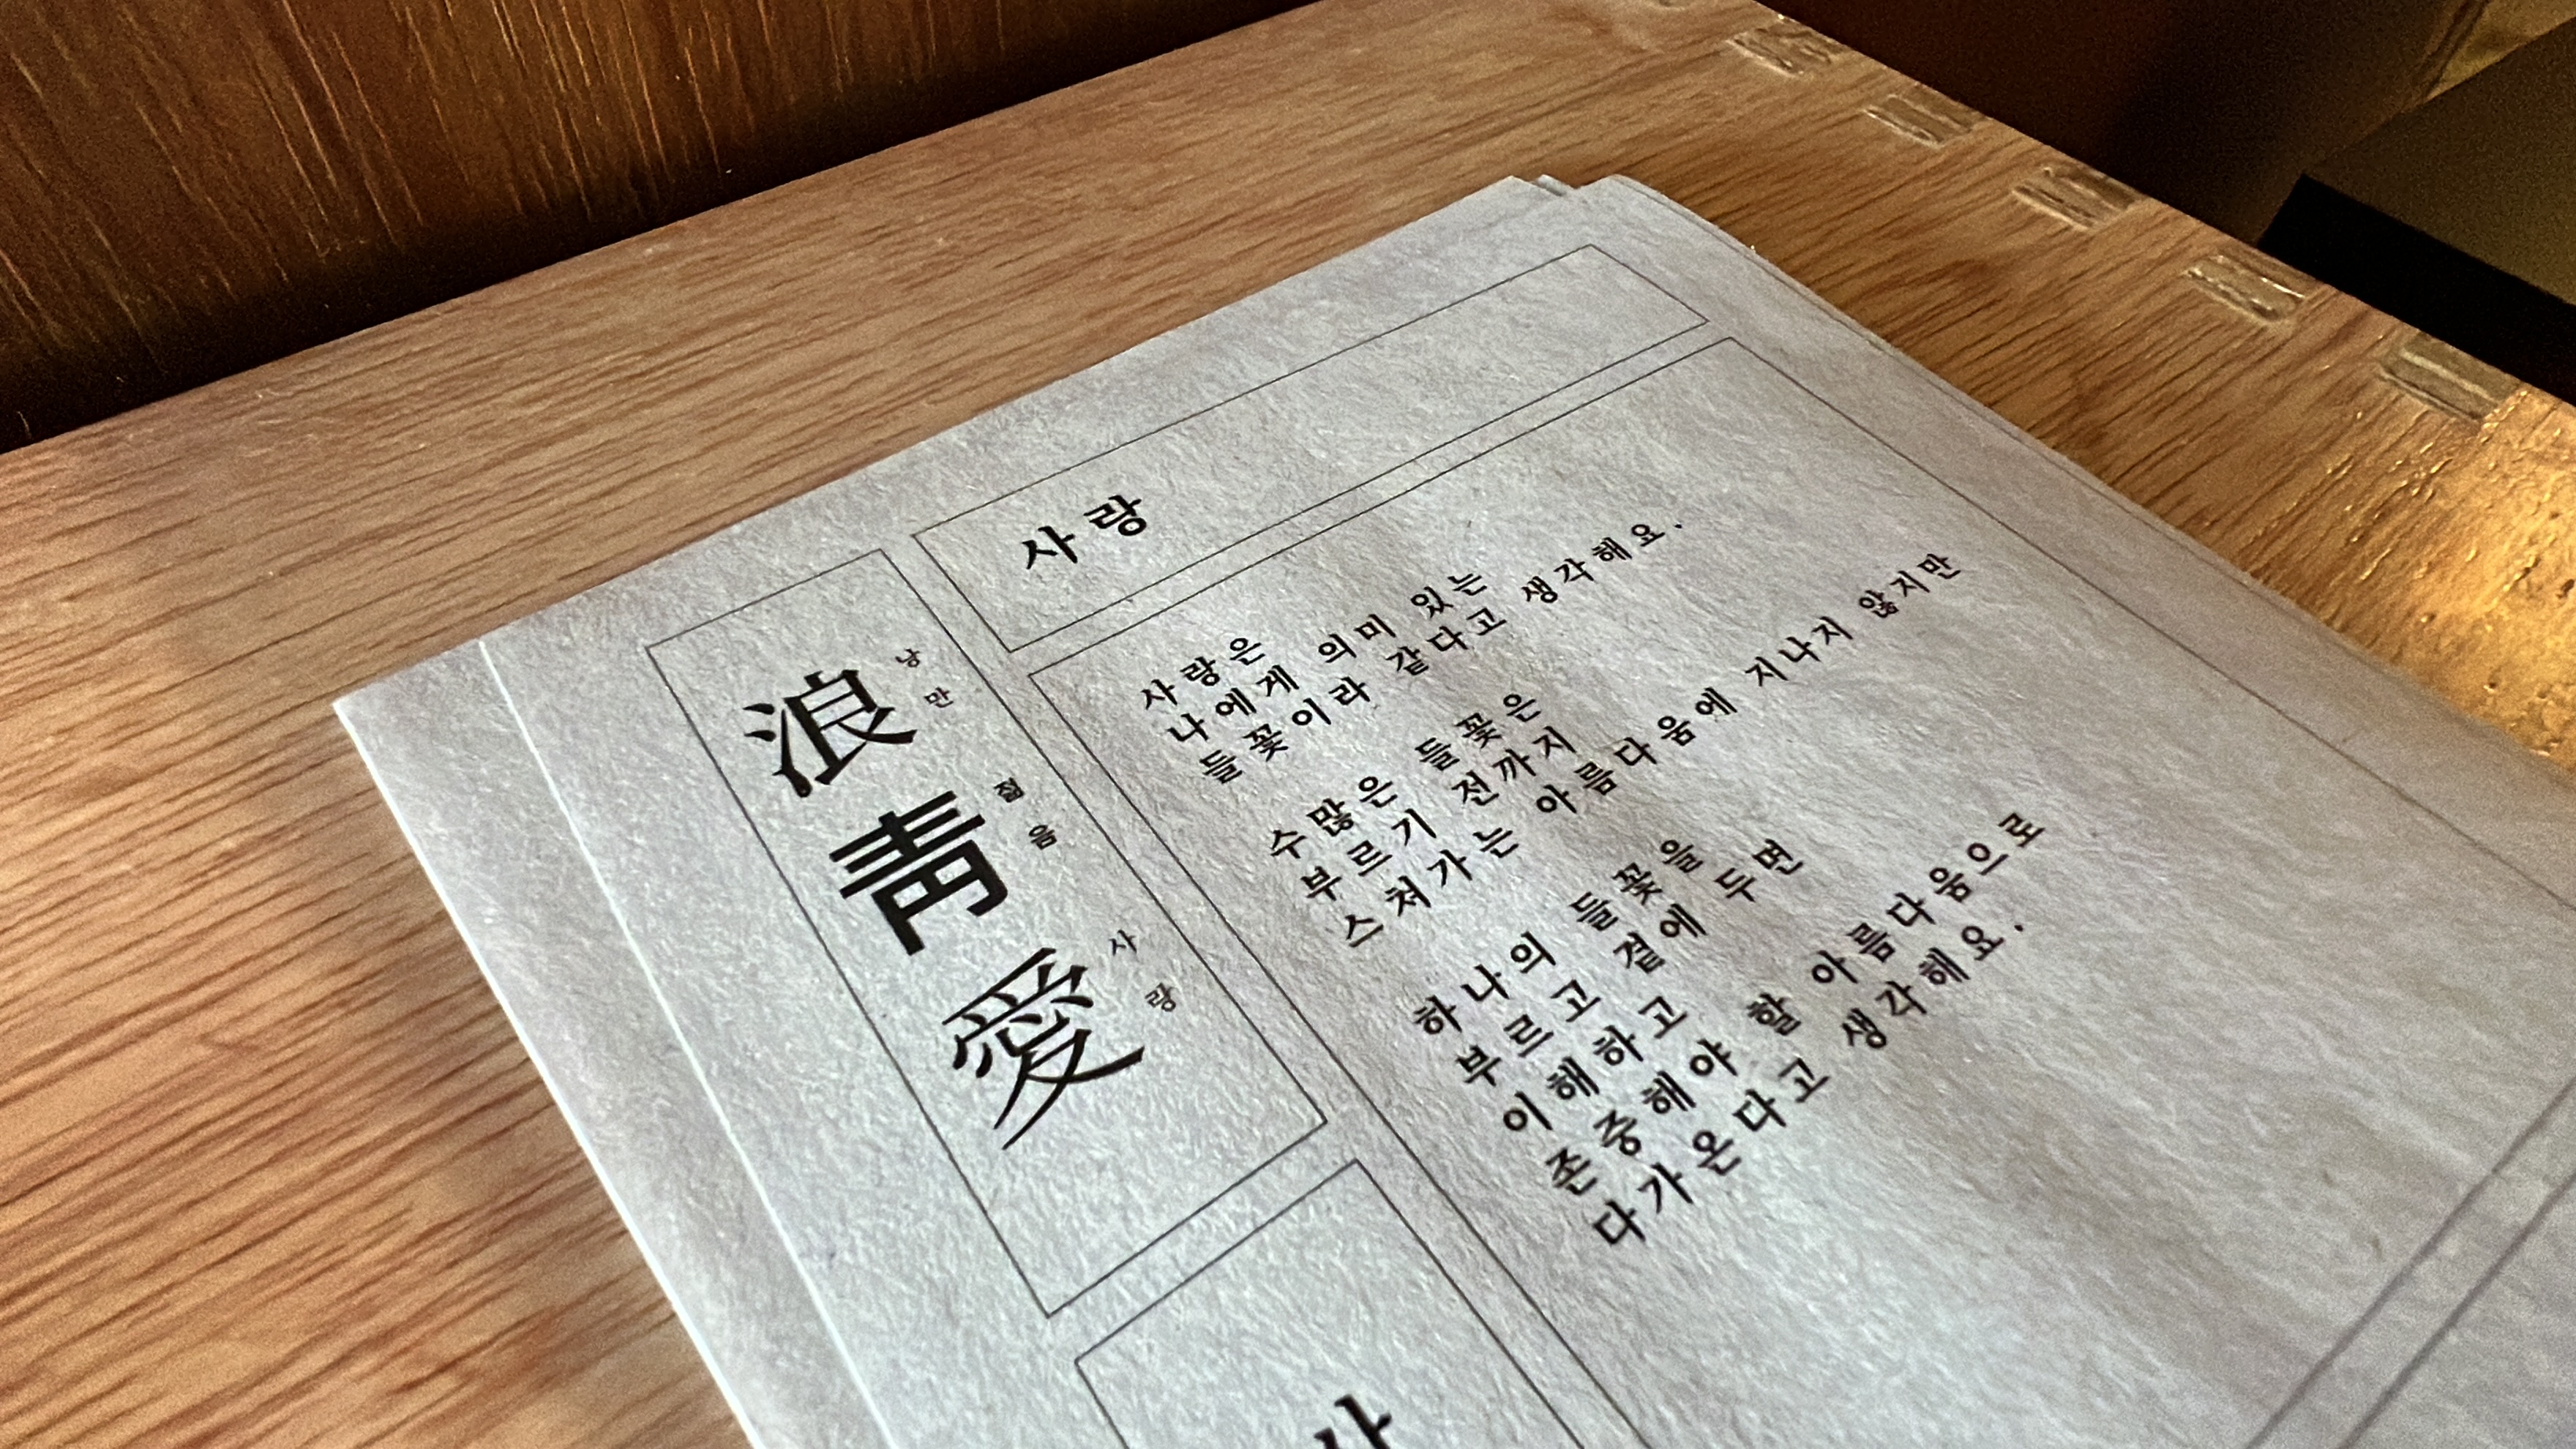 사랑
浪 낭만
靑 젊음
愛 사랑
사랑은
나에게 의미 있는
들꽃이라 같다고 생각해요.
수많은 들꽃은
부르기 전까지
스쳐가는 아름다움에 지나지 않지만
하나의 들꽃을
부르고 곁에 두면
이해하고
존중해야 할 아름다움으로
다가온다고 생각해요.
사